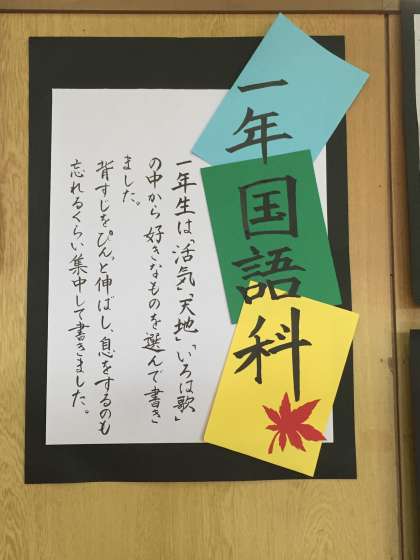 一年国語科
一年生は、「活気」「天地」「いろは歌」
の中から好きなものを選んで書き
ました。
背すじをぴんと伸ばし、息をするのも
忘れるくらい集中して書きました。